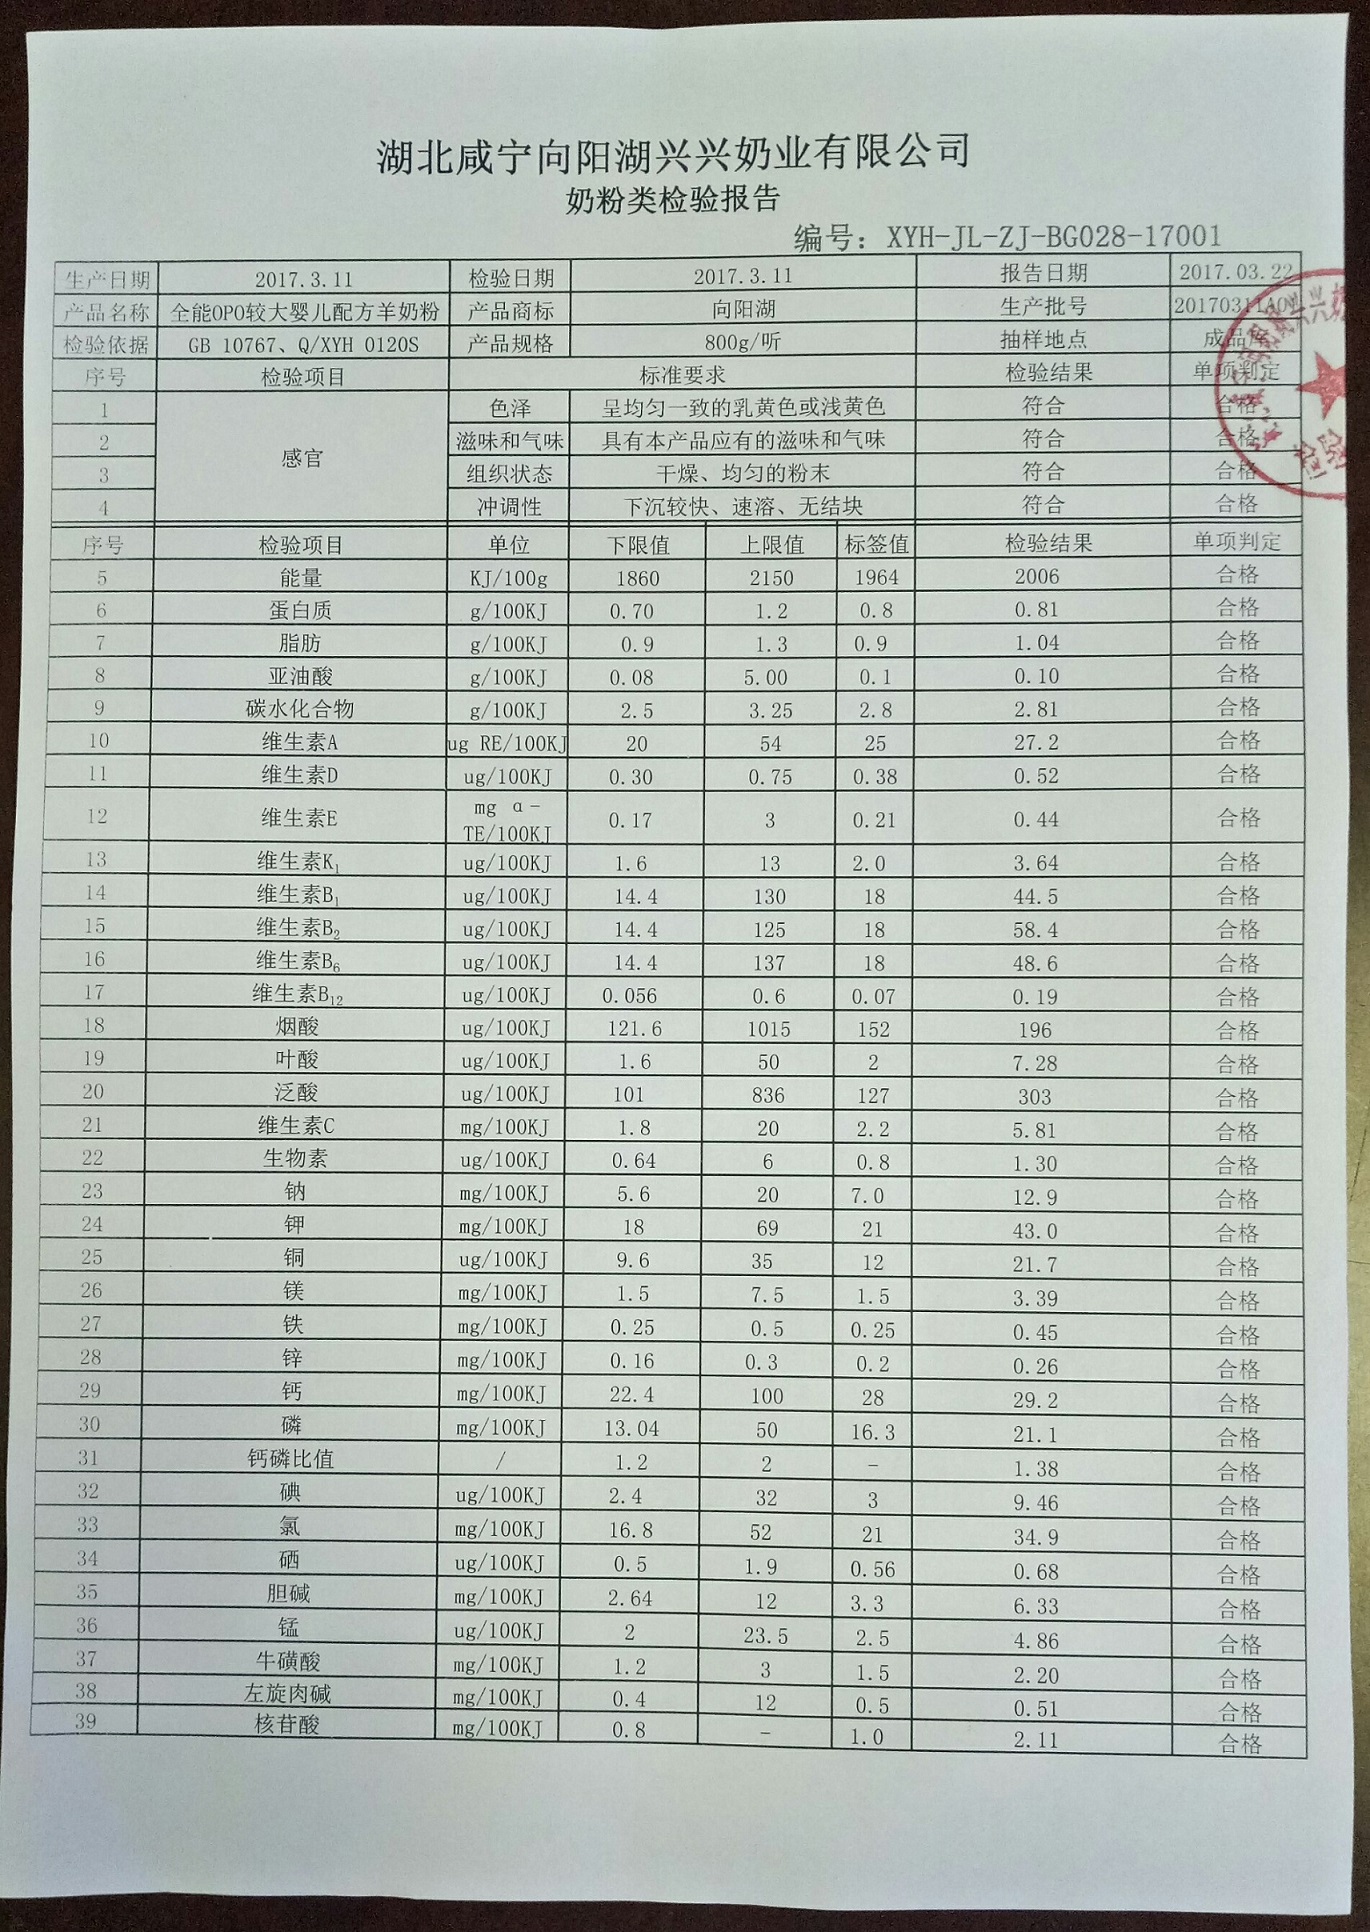 湖北咸宁向阳湖兴兴奶业有限公司
奶粉类检验报告
编号：XYH-JL-ZJ-BG028-17001
生产日期 2017.3.11 检验日期 2017.3.11 报告日期 2017.03.22
产品名称 全能OPO较大婴儿配方羊奶粉 产品商标 向阳湖 生产批号
检验依据 GB 10767、Q/XYH 0120S 产品规格 800g/听 抽样地点 成品库
序号 检验项目 标准要求 检验结果 单项判定
1 感官 色泽 呈均匀一致的乳黄色或浅黄色 符合 合格
2 滋味和气味 具有本产品应有的滋味和气味 符合 合格
3 组织状态 干燥、均匀的粉末 符合 合格
4 冲调性 下沉较快、速溶、无结块 符合 合格
序号 检验项目 单位 下限值 上限值 标签值 检验结果 单项判定
5 能量 KJ/100g 1860 2150 1964 2006 合格
6 蛋白质 g/100KJ 0.70 1.2 0.8 0.81 合格
7 脂肪 g/100KJ 0.9 1.3 0.9 1.04 合格
8 亚油酸 g/100KJ 0.08 5.00 0.1 0.10 合格
9 碳水化合物 g/100KJ 2.5 3.25 2.8 2.81 合格
10 维生素A ug RE/100KJ 20 54 25 27.2 合格
11 维生素D ug/100KJ 0.30 0.75 0.38 0.52 合格
12 维生素E mg α-TE/100KJ 0.17 3 0.21 0.44 合格
13 维生素K1 ug/100KJ 1.6 13 2.0 3.64 合格
14 维生素B1 ug/100KJ 14.4 130 18 44.5 合格
15 维生素B2 ug/100KJ 14.4 125 18 58.4 合格
16 维生素B6 ug/100KJ 14.4 137 18 48.6 合格
17 维生素B12 ug/100KJ 0.056 0.6 0.07 0.19 合格
18 烟酸 ug/100KJ 121.6 1015 152 196 合格
19 叶酸 ug/100KJ 1.6 50 2 7.28 合格
20 泛酸 ug/100KJ 101 836 127 303 合格
21 维生素C mg/100KJ 1.8 20 2.2 5.81 合格
22 生物素 ug/100KJ 0.64 6 0.8 1.30 合格
23 钠 mg/100KJ 5.6 20 7.0 12.9 合格
24 钾 mg/100KJ 18 69 21 43.0 合格
25 铜 ug/100KJ 9.6 35 12 21.7 合格
26 镁 mg/100KJ 1.5 7.5 1.5 3.39 合格
27 铁 mg/100KJ 0.25 0.5 0.25 0.45 合格
28 锌 mg/100KJ 0.16 0.3 0.2 0.26 合格
29 钙 mg/100KJ 22.4 100 28 29.2 合格
30 磷 mg/100KJ 13.04 50 16.3 21.1 合格
31 钙磷比值 / 1.2 2 - 1.38 合格
32 碘 ug/100KJ 2.4 32 3 9.46 合格
33 氯 mg/100KJ 16.8 52 21 34.9 合格
34 硒 ug/100KJ 0.5 1.9 0.56 0.68 合格
35 胆碱 mg/100KJ 2.64 12 3.3 6.33 合格
36 锰 ug/100KJ 2 23.5 2.5 4.86 合格
37 牛磺酸 mg/100KJ 1.2 3 1.5 2.20 合格
38 左旋肉碱 mg/100KJ 0.4 12 0.5 0.51 合格
39 核苷酸 mg/100KJ 0.8 - 1.0 2.11 合格